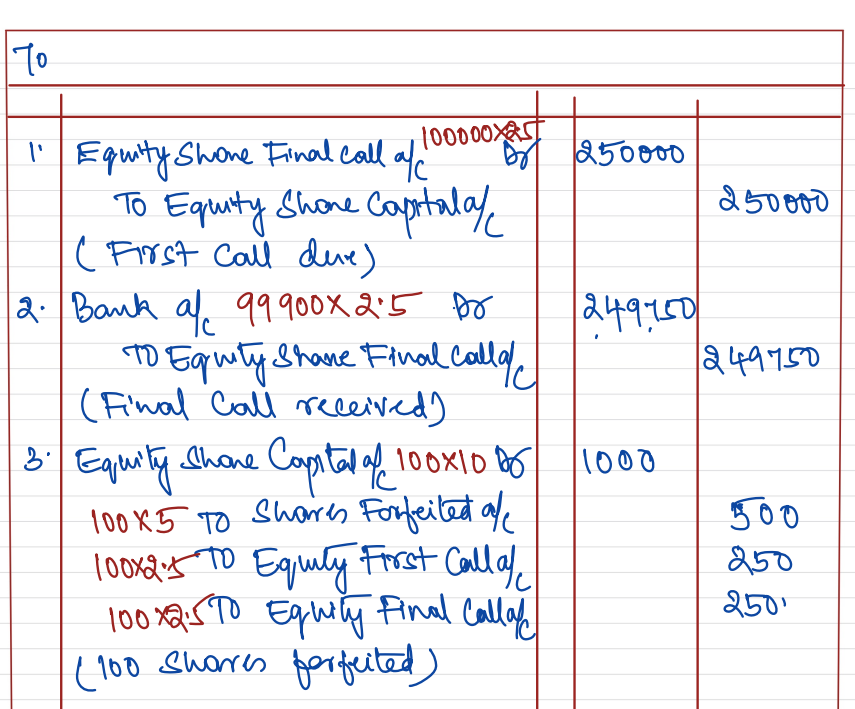 To
1. Equity Share Final Call a/c 100000X2.5 Dr 250000
To Equity Share Capital a/c 250000
(First Call due)
2. Bank a/c 99900X2.5 Dr 249750
To Equity Share Final Call a/c 249750
(Final Call received)
3. Equity Share Capital a/c 100X10 Dr 1000
100X5 To Shares Forfeited a/c 500
100X2.5 To Equity First Call a/c 250
100X2.5 To Equity Final Call a/c 250
(100 Shares forfeited)